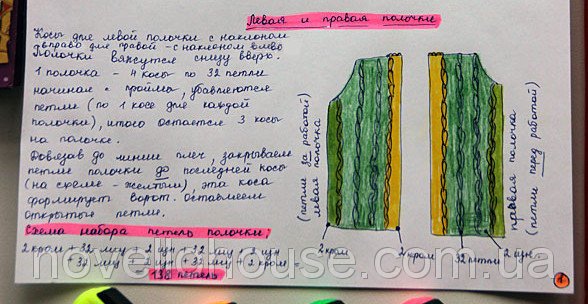 Левая и правая полочки
Косы для левой полочки с наклоном
вправо для правой - с наклоном влево
Полочки вяжутся снизу вверх.
1 полочка - 4 косы по 32 петли
начиная с проймы, убавляются
петли (по 1 косе для каждой
полочки), итого остается 3 косы
на полочке.
Довязав до линии плеч, закрываем
петли полочки до последней косы
(на схеме - желтым), эта коса
формирует ворот. Оставляем
открытые петли.
Схема набора петель полочки:
2 кром + 32 лиц + 2 изн + 32 лиц + 2 изн
+ 32 лиц + 2 изн + 32 лиц + 2 кром
138 петель
(петли за работой)
левая полочка
правая полочка
(петли перед работой)
2 кром
2 кром
32 петли
2 изн
novelhouse.com.ua